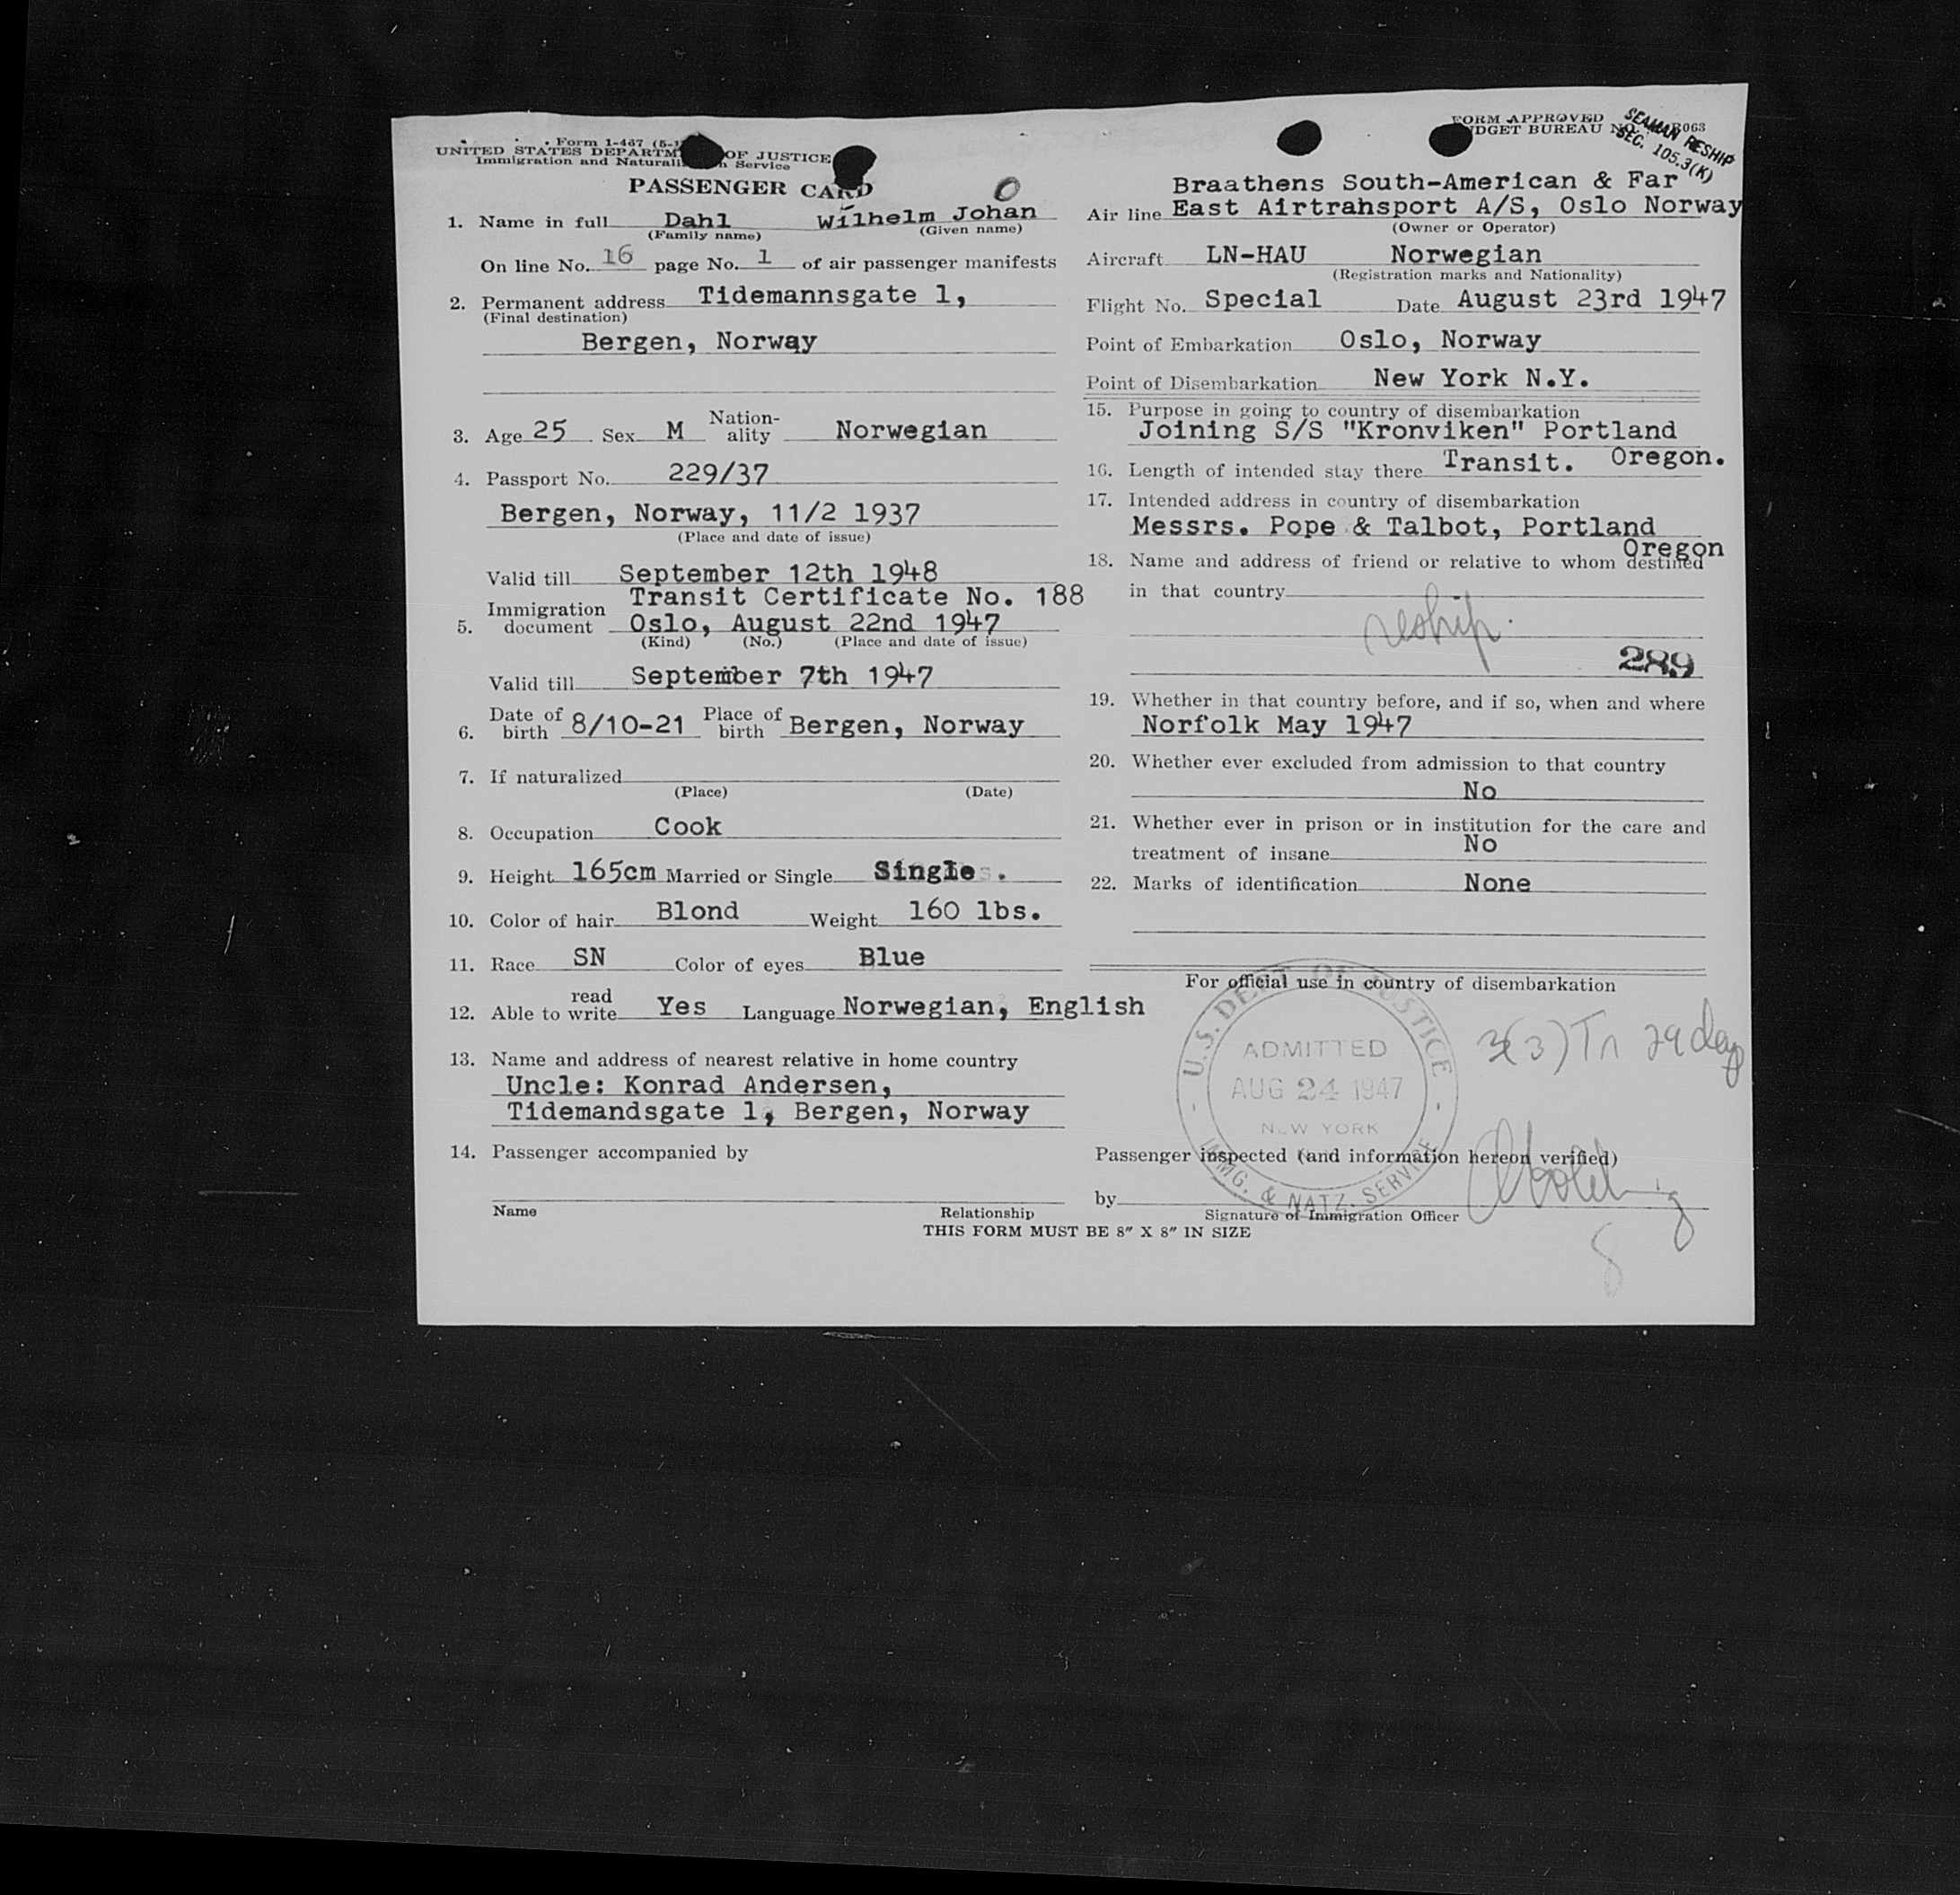 Form I-467
UNITED STATES DEPARTM OF JUSTICE
Immigration and Naturali n Service
PASSENGER CARD
0
1. Name in full Dahl Wilhelm Johan
(Family name) (Given name)
On line No. 16 page No. 1 of air passenger manifests
2. Permanent address Tidemannsgate 1,
(Final destination)
Bergen, Norway
3. Age 25 Sex M Nation-
ality Norwegian
4. Passport No. 229/37
Bergen, Norway, 11/2 1937
(Place and date of issue)
Valid till September 12th 1948
Transit Certificate No. 188
5. Immigration
document Oslo, August 22nd 1947
(Kind) (No.) (Place and date of issue)
Valid till September 7th 1947
6. Date of
birth 8/10-21 Place of
birth Bergen, Norway
7. If naturalized
(Place) (Date)
8. Occupation Cook
9. Height 165cm Married or Single Single.
10. Color of hair Blond Weight 160 lbs.
11. Race SN Color of eyes Blue
12. Able to read
write Yes Language Norwegian, English
13. Name and address of nearest relative in home country
Uncle: Konrad Andersen,
Tidemandsgate 1, Bergen, Norway
14. Passenger accompanied by
Name Relationship
FORM APPROVED
DGET BUREAU NO. R063
SEAMAN RESHIP
SEC. 105.3(K)
Braathens South-American & Far
Air line East Airtransport A/S, Oslo Norway
(Owner or Operator)
Aircraft LN-HAU Norwegian
(Registration marks and Nationality)
Flight No. Special Date August 23rd 1947
Point of Embarkation Oslo, Norway
Point of Disembarkation New York N.Y.
15. Purpose in going to country of disembarkation
Joining S/S "Kronviken" Portland
Oregon.
16. Length of intended stay there Transit.
17. Intended address in country of disembarkation
Messrs. Pope & Talbot, Portland
Oregon
18. Name and address of friend or relative to whom destined
in that country
reship.
289
19. Whether in that country before, and if so, when and where
Norfolk May 1947
20. Whether ever excluded from admission to that country
No
21. Whether ever in prison or in institution for the care and
treatment of insane No
22. Marks of identification None
For official use in country of disembarkation
U.S. DEPT. OF JUSTICE
ADMITTED
AUG 24 1947
NEW YORK
IMMG. & NATZ. SERVICE
3(3) Tr 29 days
Passenger inspected (and information hereon verified)
by
Signature of Immigration Officer
THIS FORM MUST BE 8" X 8" IN SIZE